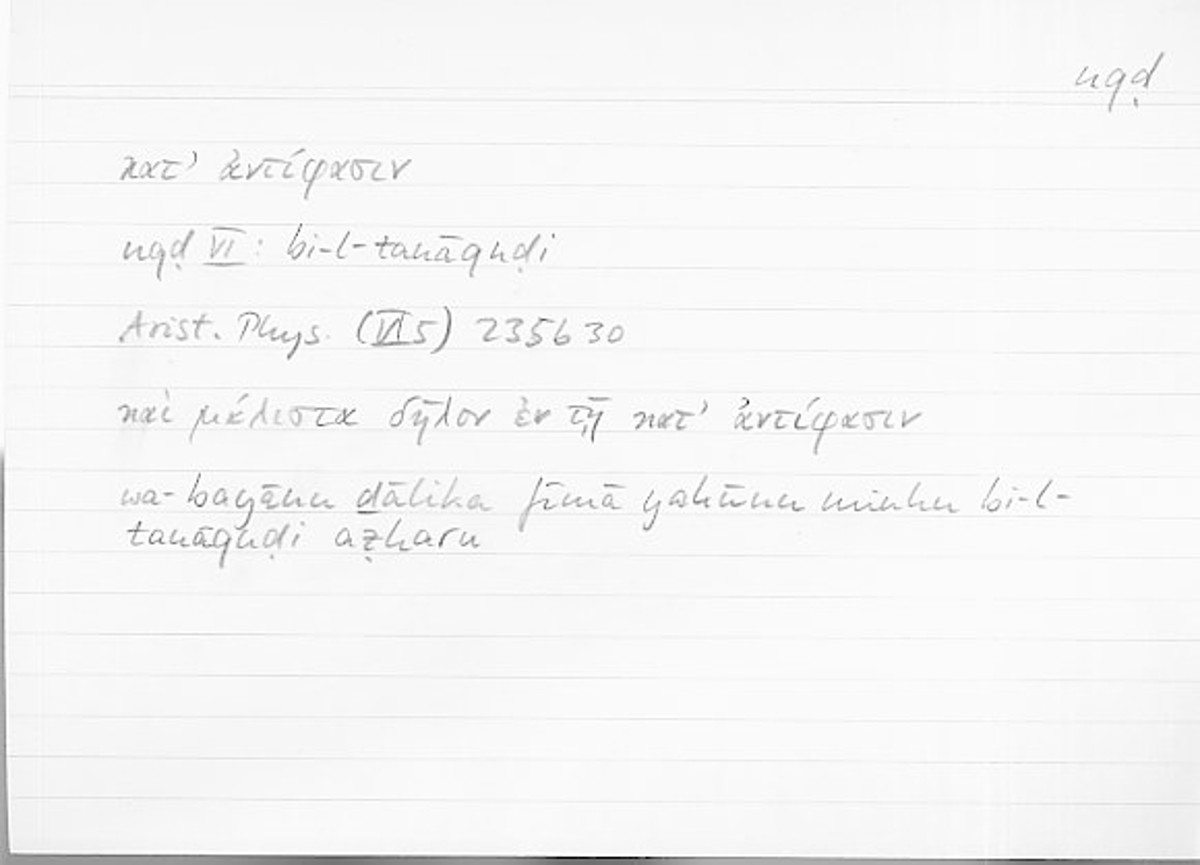 nqḍ
κατ’ ἀντίφασιν
nqḍ VI: bi-l-tanāquḍi
Arist. Phys. (VI 5) 235b30
καὶ μάλιστα δῆλον ἐν τῇ κατ’ ἀντίφασιν
wa-bayānu ḏālika fīmā yakūnu minhu bi-l-
tanāquḍi aẓharu